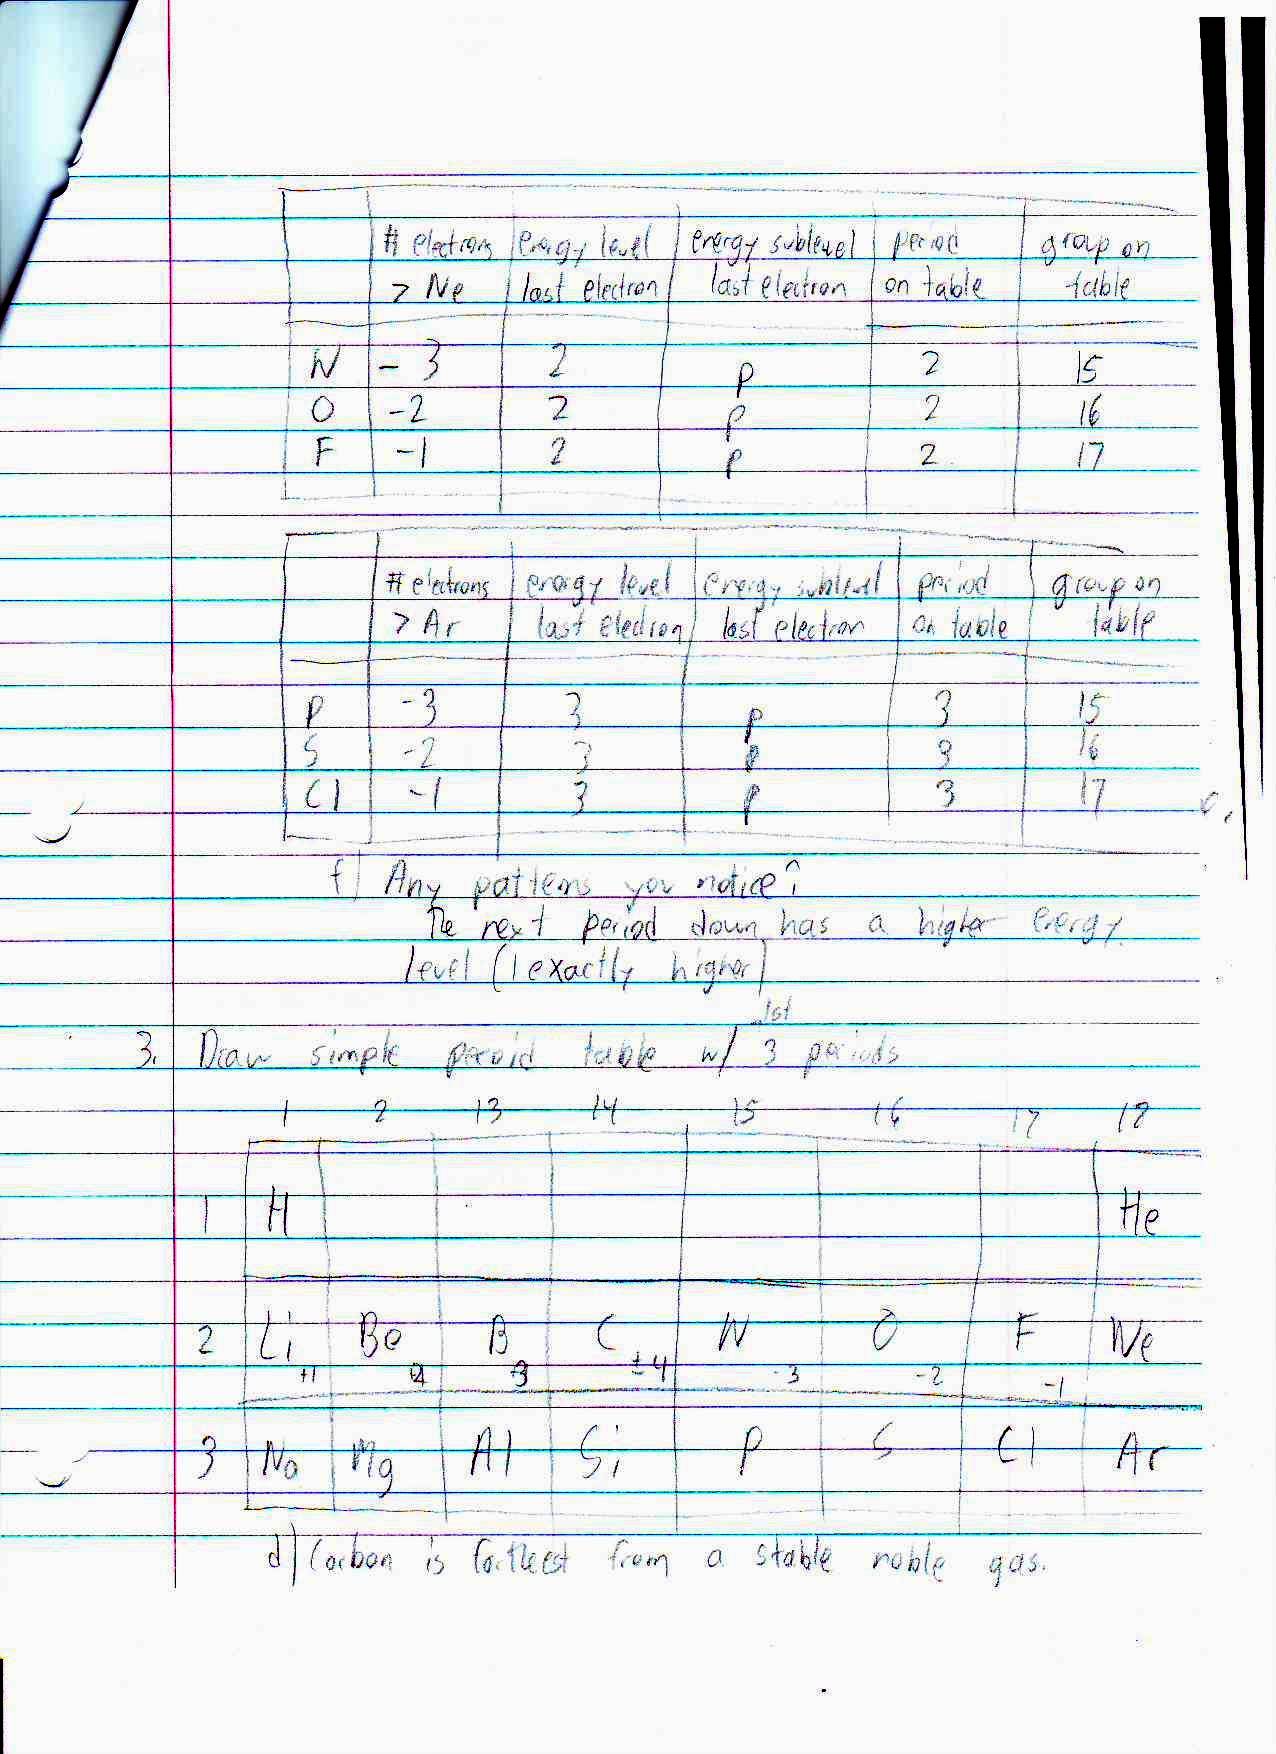 # electrons energy level energy sublevel period group on
> Ne last electron last electron on table table
N -3 2 p 2 15
O -2 2 p 2 16
F -1 2 p 2 17
# electrons energy level energy sublevel period group on
> Ar last electron last electron on table table
P -3 3 p 3 15
S -2 3 p 3 16
Cl -1 3 p 3 17
f) Any patterns you notice?
The next period down has a higher energy
level (1 exactly higher)
1st
3. Draw simple peroid table w/ 3 periods
1 2 13 14 15 16 17 18
1 H He
2 Li Be B C N O F Ne
+1 ±4 -3 -2 -1
3 Na Mg Al Si P S Cl Ar
d) Carbon is fartheest from a stable noble gas.